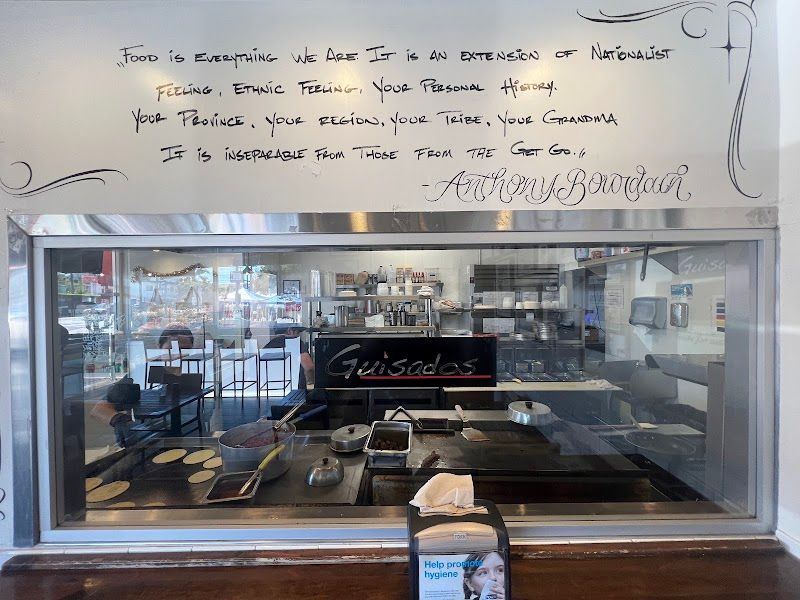 „Food is everything we are. It is an extension of Nationalist
Feeling, Ethnic Feeling, Your Personal History.
Your Province, your region, your Tribe, your Grandma
It is inseparable from those from the Get Go.„
-Anthony Bourdain
Guisados
Help promote
hygiene